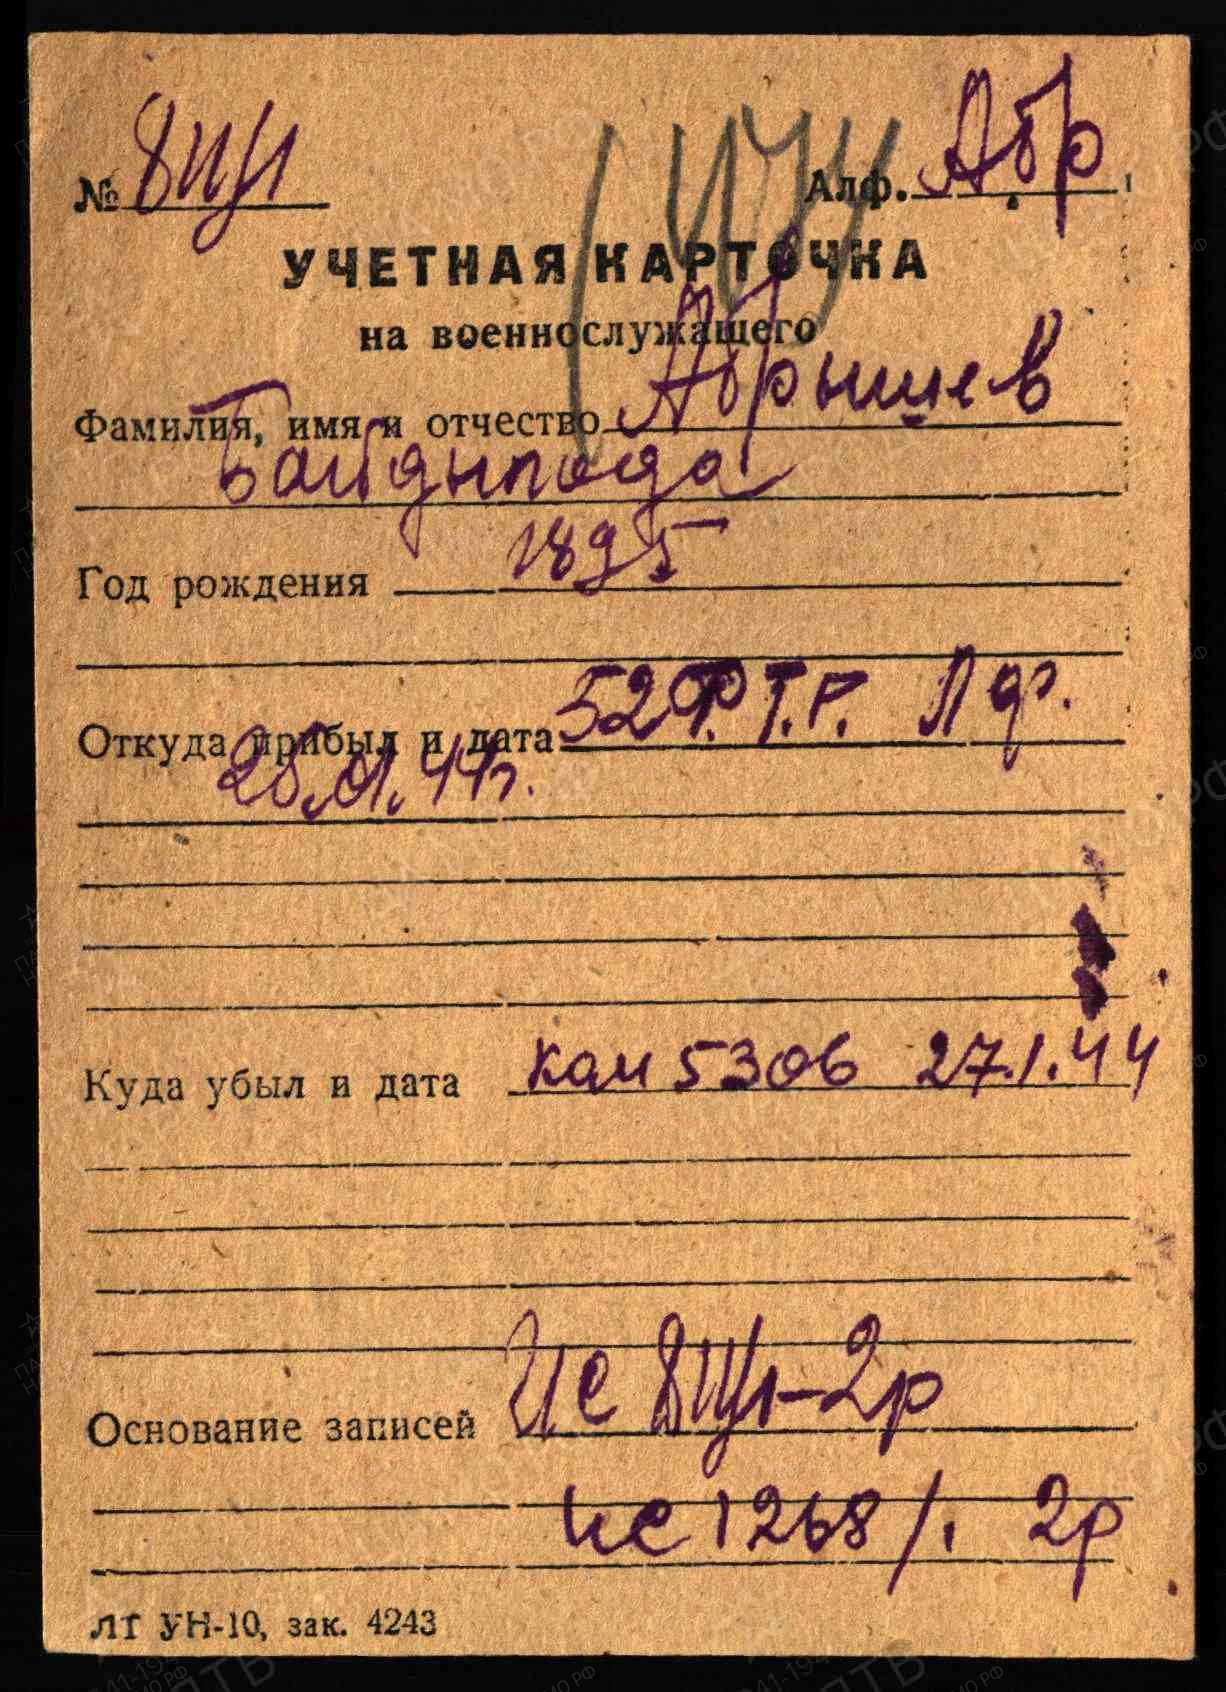 № 8Щ/1
Алф. Абр
УЧЕТНАЯ КАРТОЧКА
на военнослужащего
Фамилия, имя и отчество Абрышев
Байдыпода
Год рождения 1895
Откуда прибыл и дата 52 Ф.Т.Г. Лф.
25.01.44г.
Куда убыл и дата ком 5306 27.1.44
Основание записей ис 8Щ/1-2р
ис 1268/1. 2р
ЛТ УН-10, зак. 4243